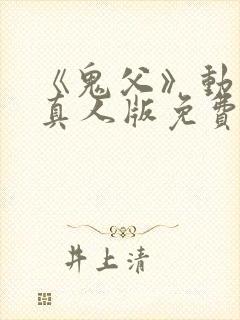 《鬼父》動
真人版免費
井上清